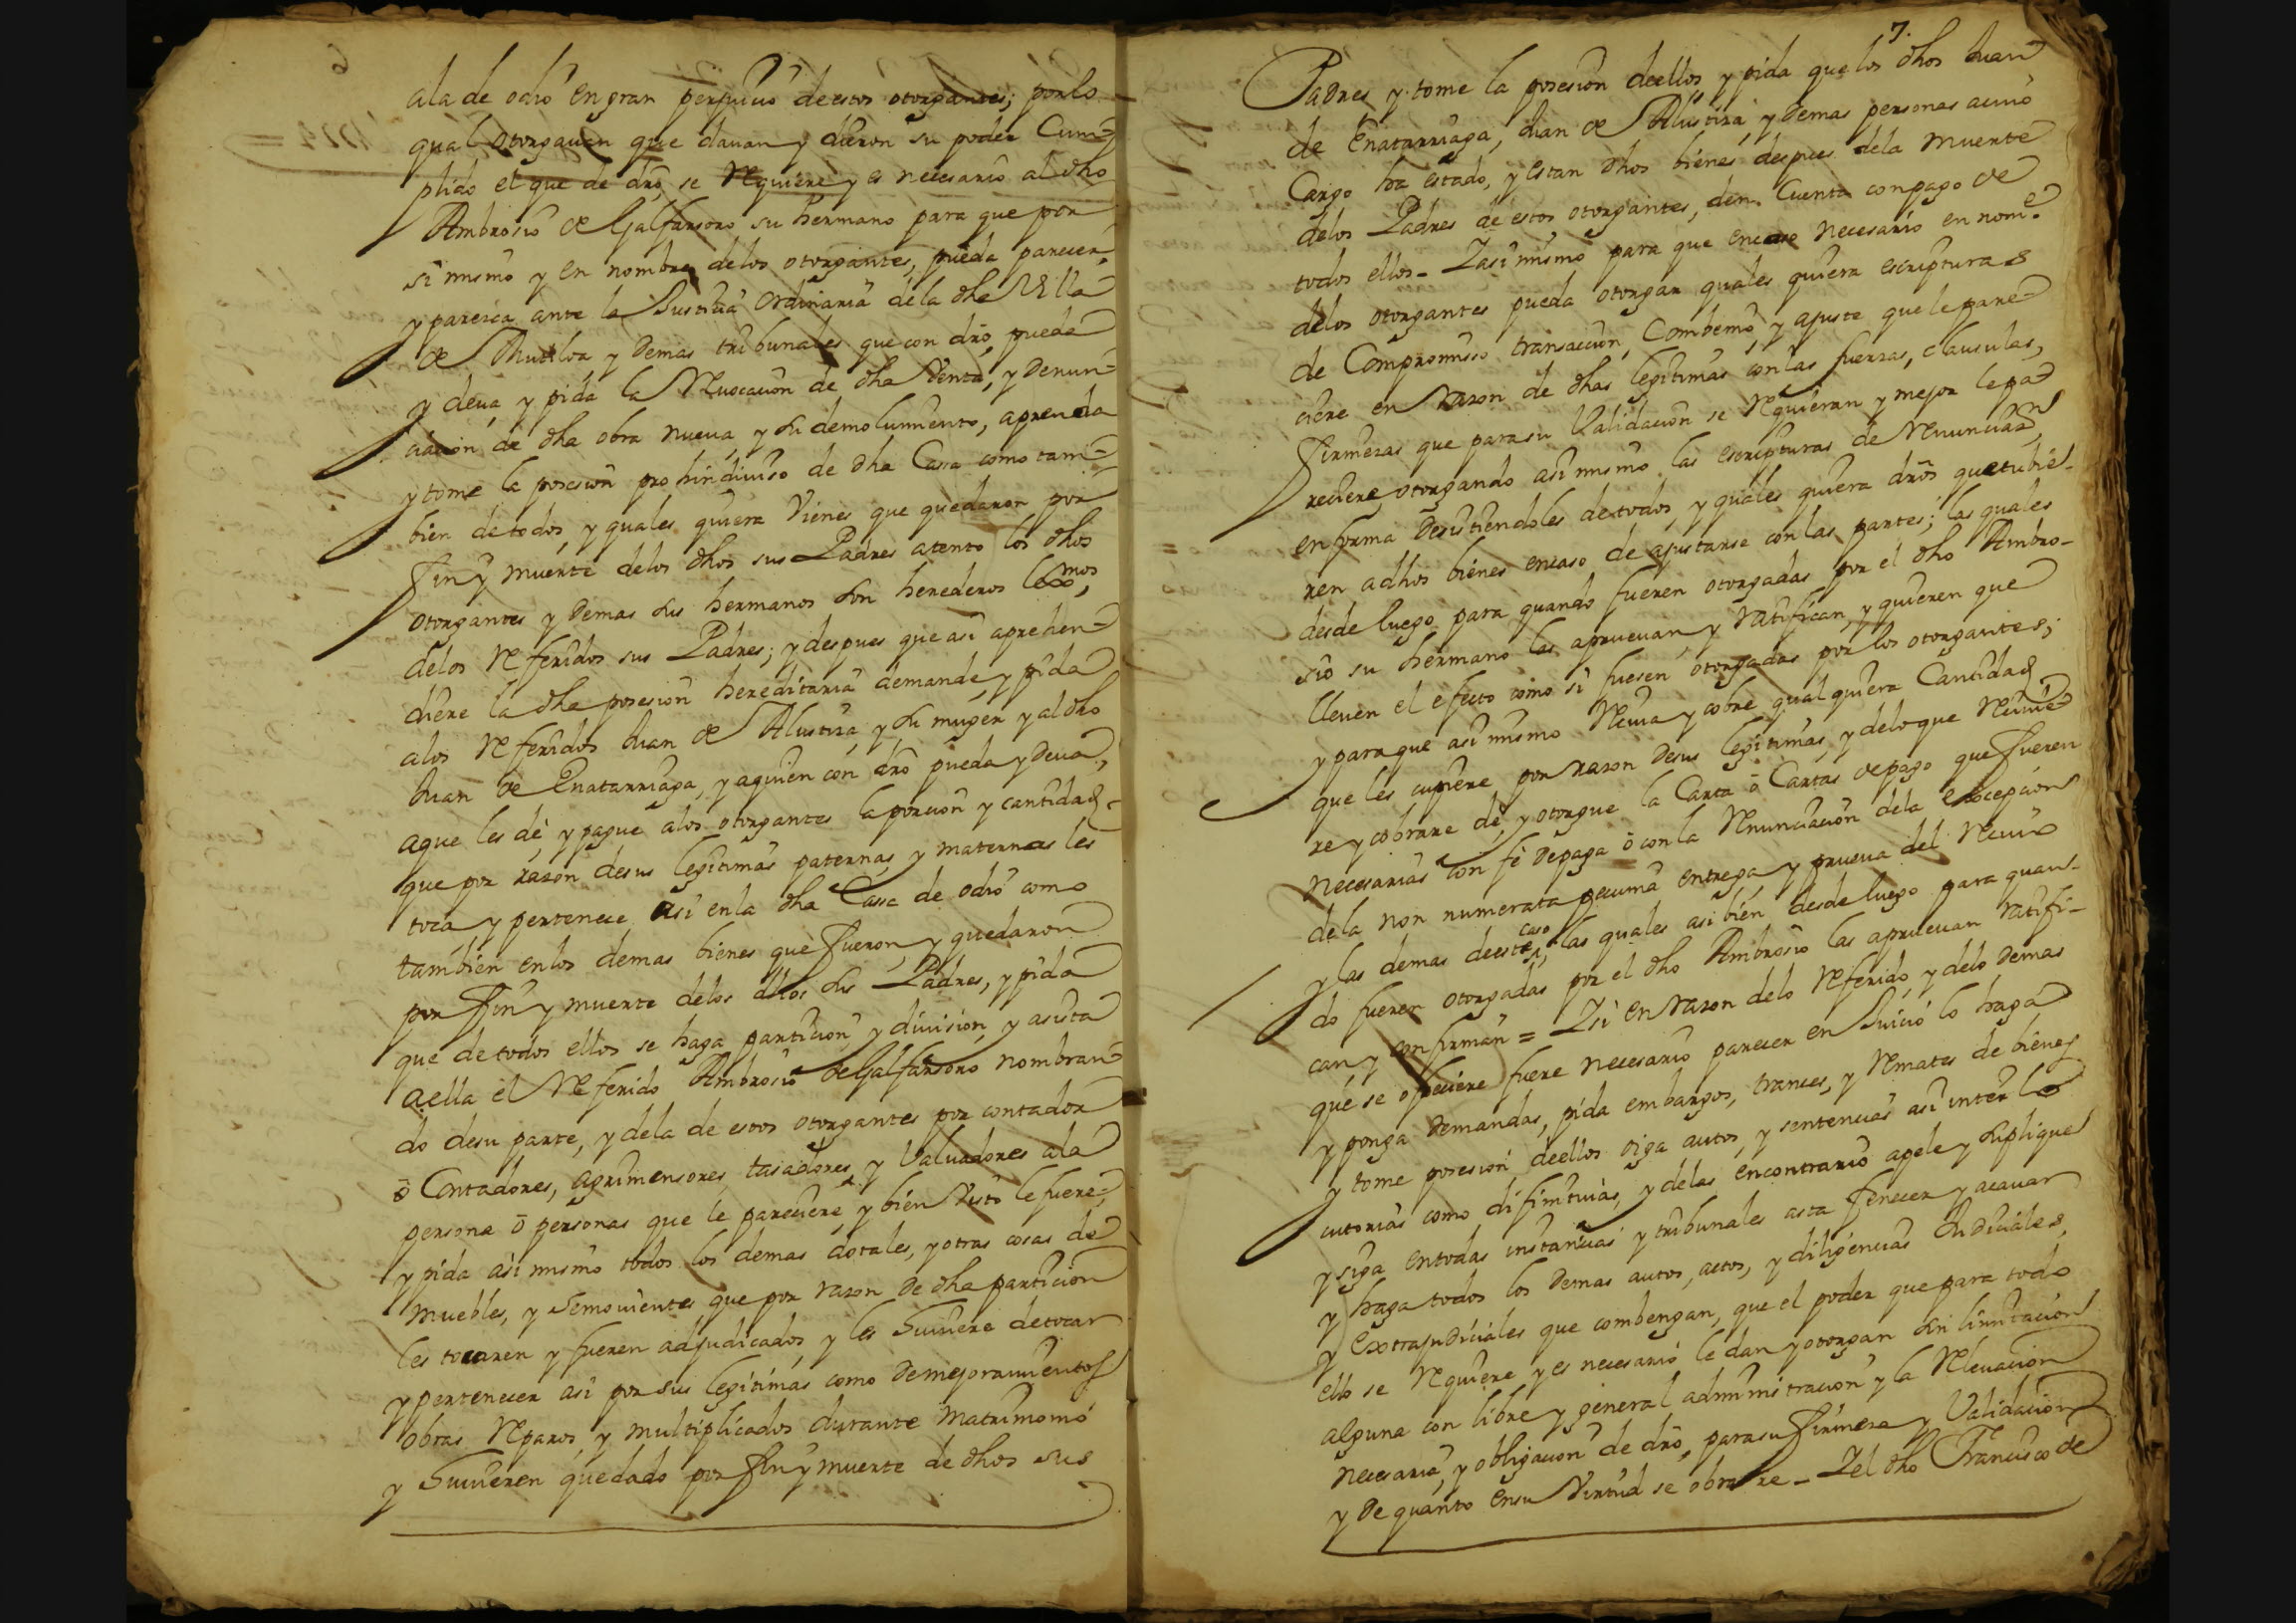 ala de odrio en gran perjuicio de estos otorgantes; por lo
qual otorgauan que dauan y dieron su poder Cum=
plido el que de dro, se requiere y es necesario al dho
Ambrosio de Galfarsoro su hermano para que por
si mismo y en nombre delos otorgantes, pueda parecer,
y paresca ante la Justicia ordinaria de la dha Villa
de Mutiloa, y demas tribunales que con dro, pueda
y deua, y pida la Reuocacion de dha Venta, y denun=
ciacion de dha obra nueua, y su demolimiento, aprenda
y tome la posesion pro hindiuiso de dha Casa como tam=
bien de todos, y quales quiera Vienes que quedaron por
fin y muerte delos dhos sus Padres atento los dhos
otorgantes y demas sus hermanos son herederos lexmos,
delos Referidos sus Padres; y despues que asi aprehen=
diere la dha posesion hereditaria demande, y pida
alos Referidos Juan de Alustiza, y su muger y al dho
Juan de Enatarriaga, y aquien con dro pueda y deua,
a que les dè, y pague alos otorgantes la porcion y cantidad
que por razon de sus legitimas paternas, y maternas les
toca y pertenece asi en la dha Casa de odrio como
tambien en los demas bienes que fueron, y quedaron
por fin y muerte delos dhos sus Padres, y pida
que de todos ellos se haga particion, y diuision, y asista
a ella el Referido Ambrosio de Galfarsoro nombran=
do de su parte, y dela de estos otorgantes por contador
ō Contadores, agrimensores, tasadores, y Valuadores ala
persona ō personas que le pareciere, y bien Visto le fuere=,
y pida asi mismo todos los demas dotales, y otras cosas de
muebles, y semouientes que por razon de dha particion
les tocaren y fueren adjudicados, y les huuiere de tocar
y pertenecer asi por sus legitimas como de mejoramientos
obras Reparos, y multiplicados durante matrimonio
y huuieren quedado por fin y muerte de dhos sus
7.
Padres y tome la posesion de ellos, y pida que los dhos Juan
de Enatarriaga, Juan de Alustiza, y demas personas a cuio
Cargo ha estado, y estan dhos bienes despues dela muerte
delos Padres de estos otorgantes, den Cuenta con pago de
todos ellos - Y asi mismo para que en caso necesario en nome
delos otorgantes pueda otorgar quales quiera escripturas
de Compromisso transaccion, Combenio, y ajuste que le pare=
ciere en razon de dhas legitimas con las fuerzas, clausulas,
firmezas que para su Validacion se Requieran y mejor le pa=
reciere, otorgando asi mismo las escripturas de Renunciazon
en forma desistiendoles de todos, y quales quiera dros que tubie-
ren a dhos bienes en caso de ajustarse con las partes; las quales
desde luego para quando fueren otorgadas por el dho Ambro-
sio su hermano las aprueuan, y ratifican, y quieren que
lleuen el efecto como si fuesen otorgadas por los otorgantes;
y para que asi mismo Reciua y cobre qual quiera Cantidad
que les cupiere por razon de sus legitimas, y delo que Reciuie=
re y cobrare dè, y otorgue la Carta ō Cartas de pago que fueren
necesarias con fè de paga ō con la Renunciacion dela excepcion
dela non numerata pecunia entrega y prueua del Reciuo
y las demas de este caso, las quales asi bien desde luego para quan-
do fueren otorgadas por el dho Ambrosio las aprueuan ratifi-
can y confirman = Y si en razon delo Referido, y delo demas
que se ofreciere fuere necesario parecer en Juicio lo haga
y ponga demandas, pida embargos, trances, y Remates de bienes
y tome posesion de ellos oiga autos, y sentencias asi inter lo
cutorias como difinitiuas, y delas en contrario apele y suplique
y siga en todas instancias y tribunales asta fenecer y acauar
y haga todos los demas autos, actos, y diligencias Judiciales,
y extrajudiciales que combengan, que el poder que para todo
ello se Requiere y es necesario le dan y otorgan sin limitacion
alguna con libre y general administracion y la Releuacion
necesaria, y obligacion de dro, para su firmeza y Validacion
y de quanto en su Virtud se obrare - Y el dho Francisco de